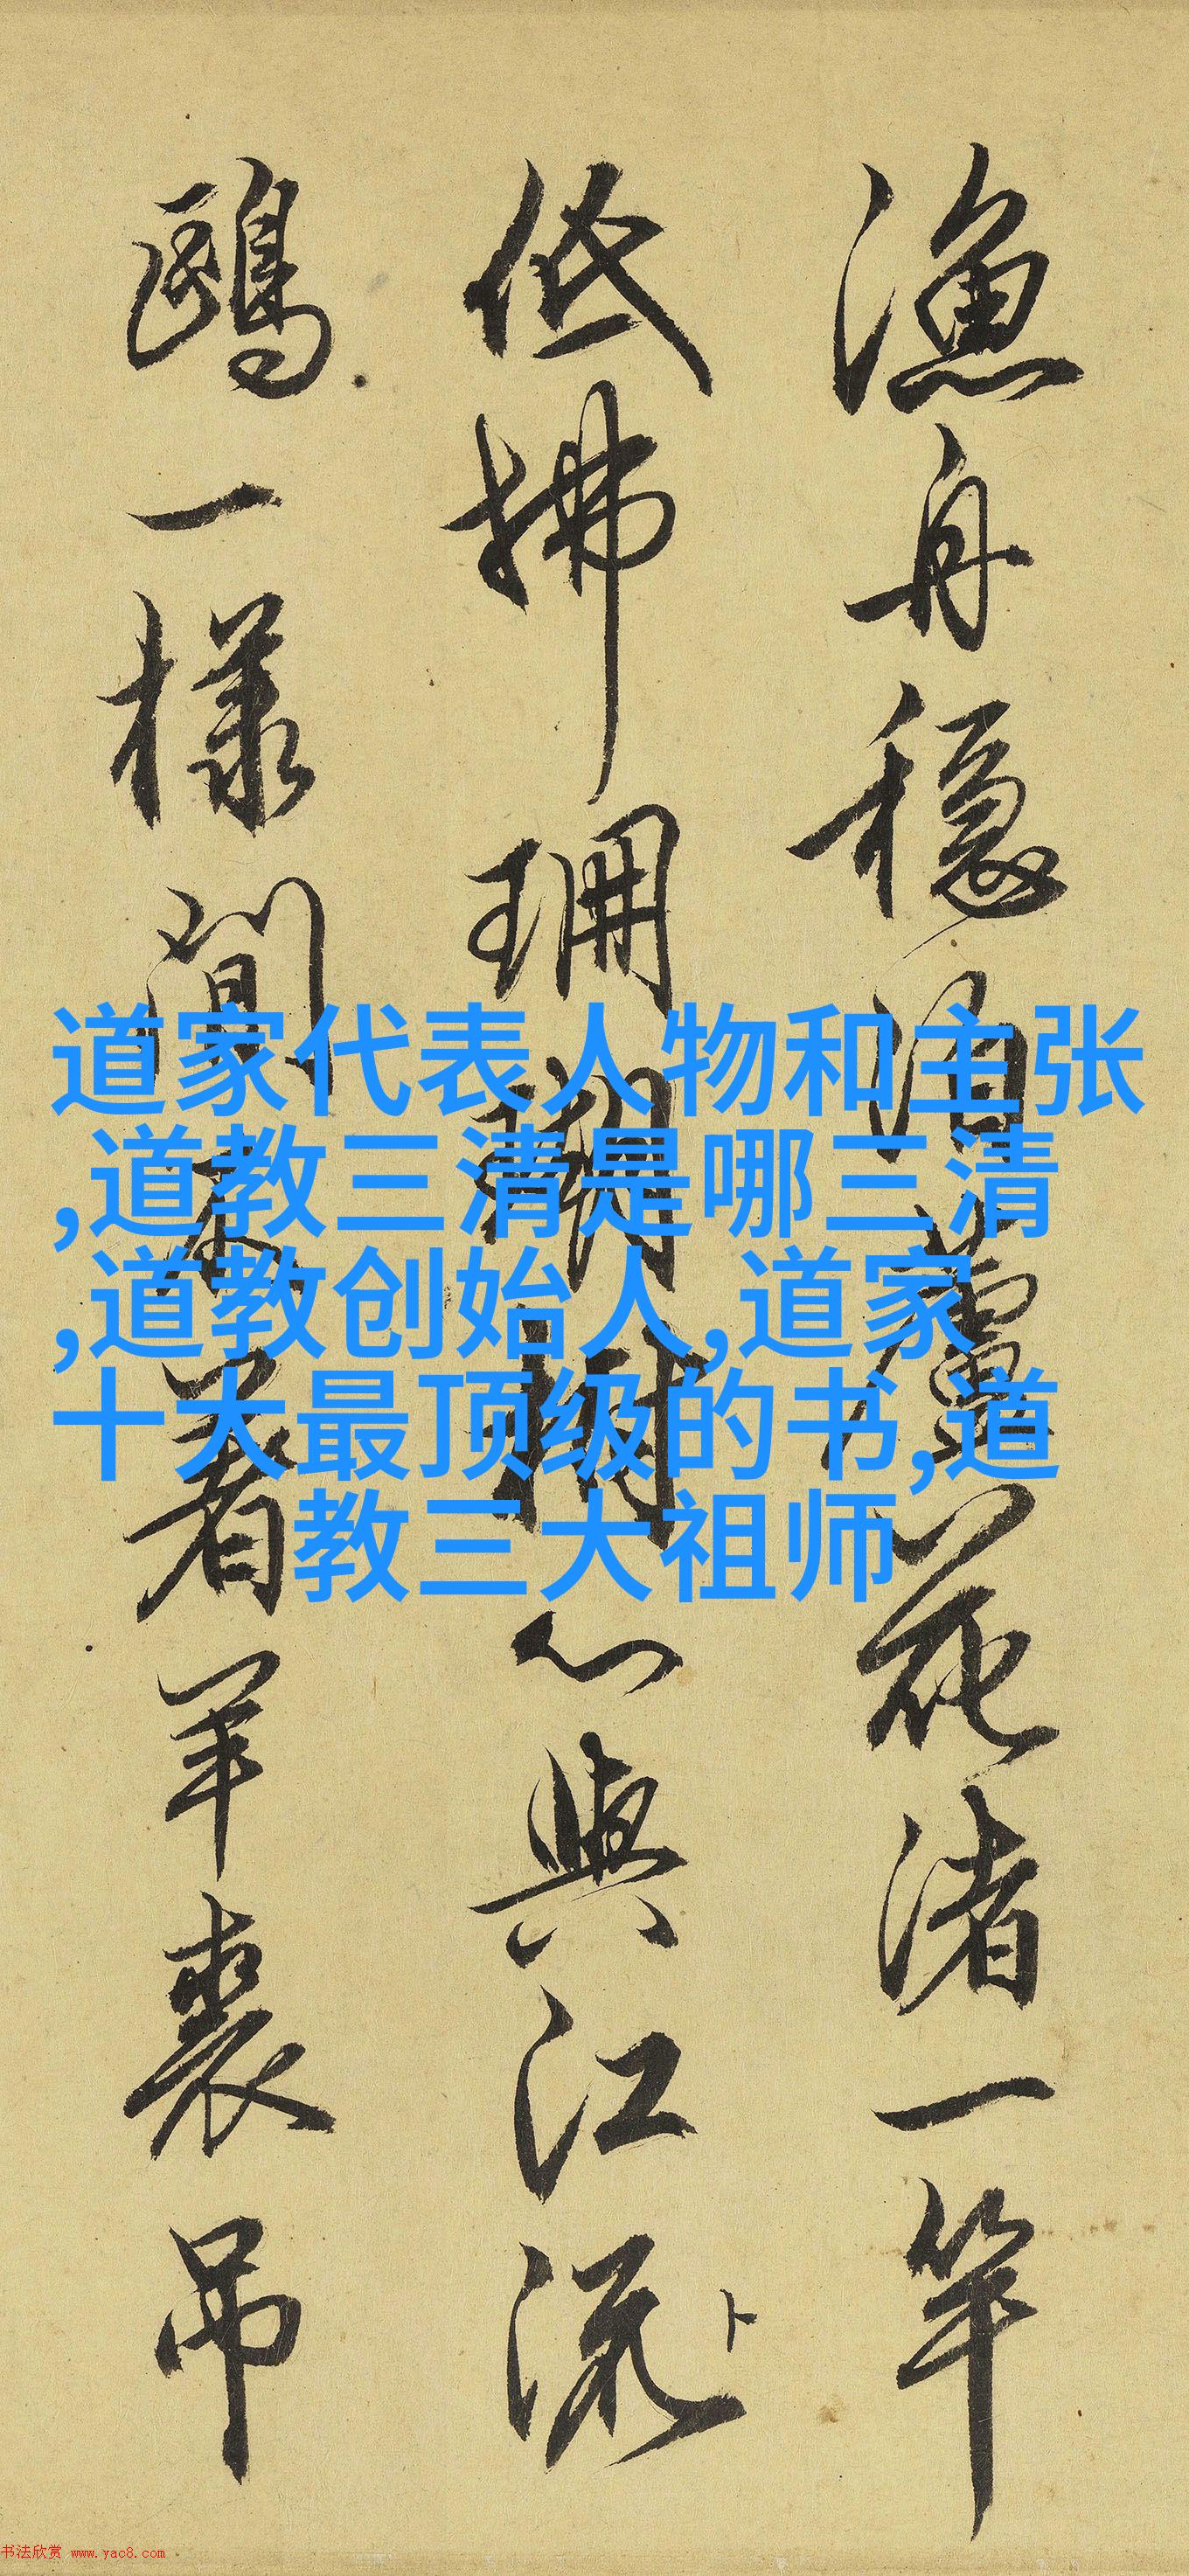 漁舟穩泊蘆花渚一竿
低拂珊瑚樹心與江流
鷗一樣閒不著羊裘吊
卜
道家代表人物和主张
,道教三清是哪三清
,道教创始人,道家
十大最顶级的书,道
教三大祖师
书法欣赏 www.yac8.com